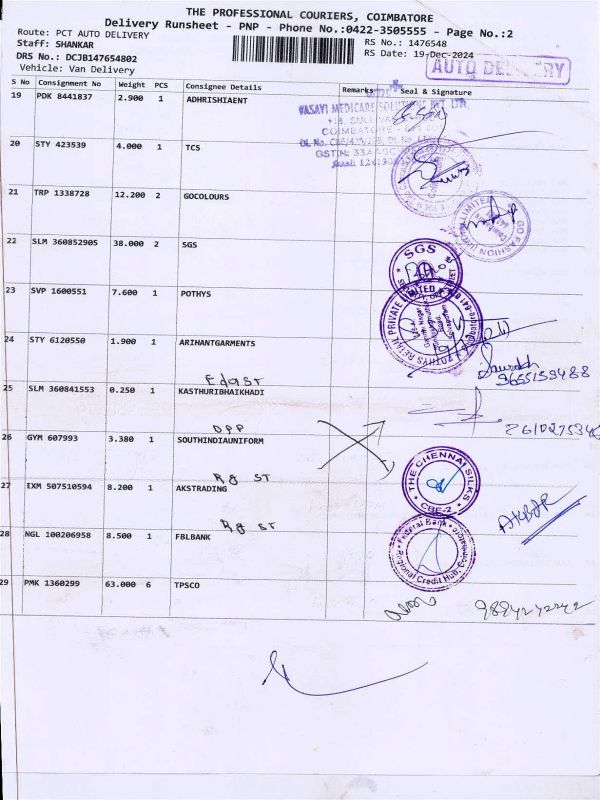 THE PROFESSIONAL COURIERS, COIMBATORE
Delivery Runsheet - PNP - Phone No.:0422-3505555 - Page No.:2
Route: PCT AUTO DELIVERY
Staff: SHANKAR RS No.: 1476548
DRS No.: DCJB147654802 RS Date: 19-Dec-2024
Vehicle: Van Delivery
AUTO DELIVERY
S No Consignment No Weight PCS Consignee Details Remarks Seal & Signature
19 PDK 8441837 2.900 1 ADHRISHIAENT
VASAVI MEDICARE SOLUTIONS PVT LTD
COIMBATORE
20 STY 423539 4.000 1 TCS
21 TRP 1338728 12.200 2 GOCOLOURS
GO FASHION LIMITED
22 SLM 360852905 38.000 2 SGS
SGS
23 SVP 1600551 7.600 1 POTHYS
POTHYS RETAIL PRIVATE LIMITED
24 STY 6120550 1.900 1 ARIHANTGARMENTS
25 SLM 360841553 0.250 1 KASTHURIBHAIKHADI
OPP
26 GYM 607993 3.380 1 SOUTHINDIAUNIFORM
THE CHENNAI SILKS
CBE-2
Rg ST
27 IXM 507510594 8.200 1 AKSTRADING
AKBAR
Rg ST
28 NGL 100206958 8.500 1 FBLBANK
Federal Bank
Regional Credit Hub, Coimbatore
29 PMK 1360299 63.000 6 TPSCO
9894242242